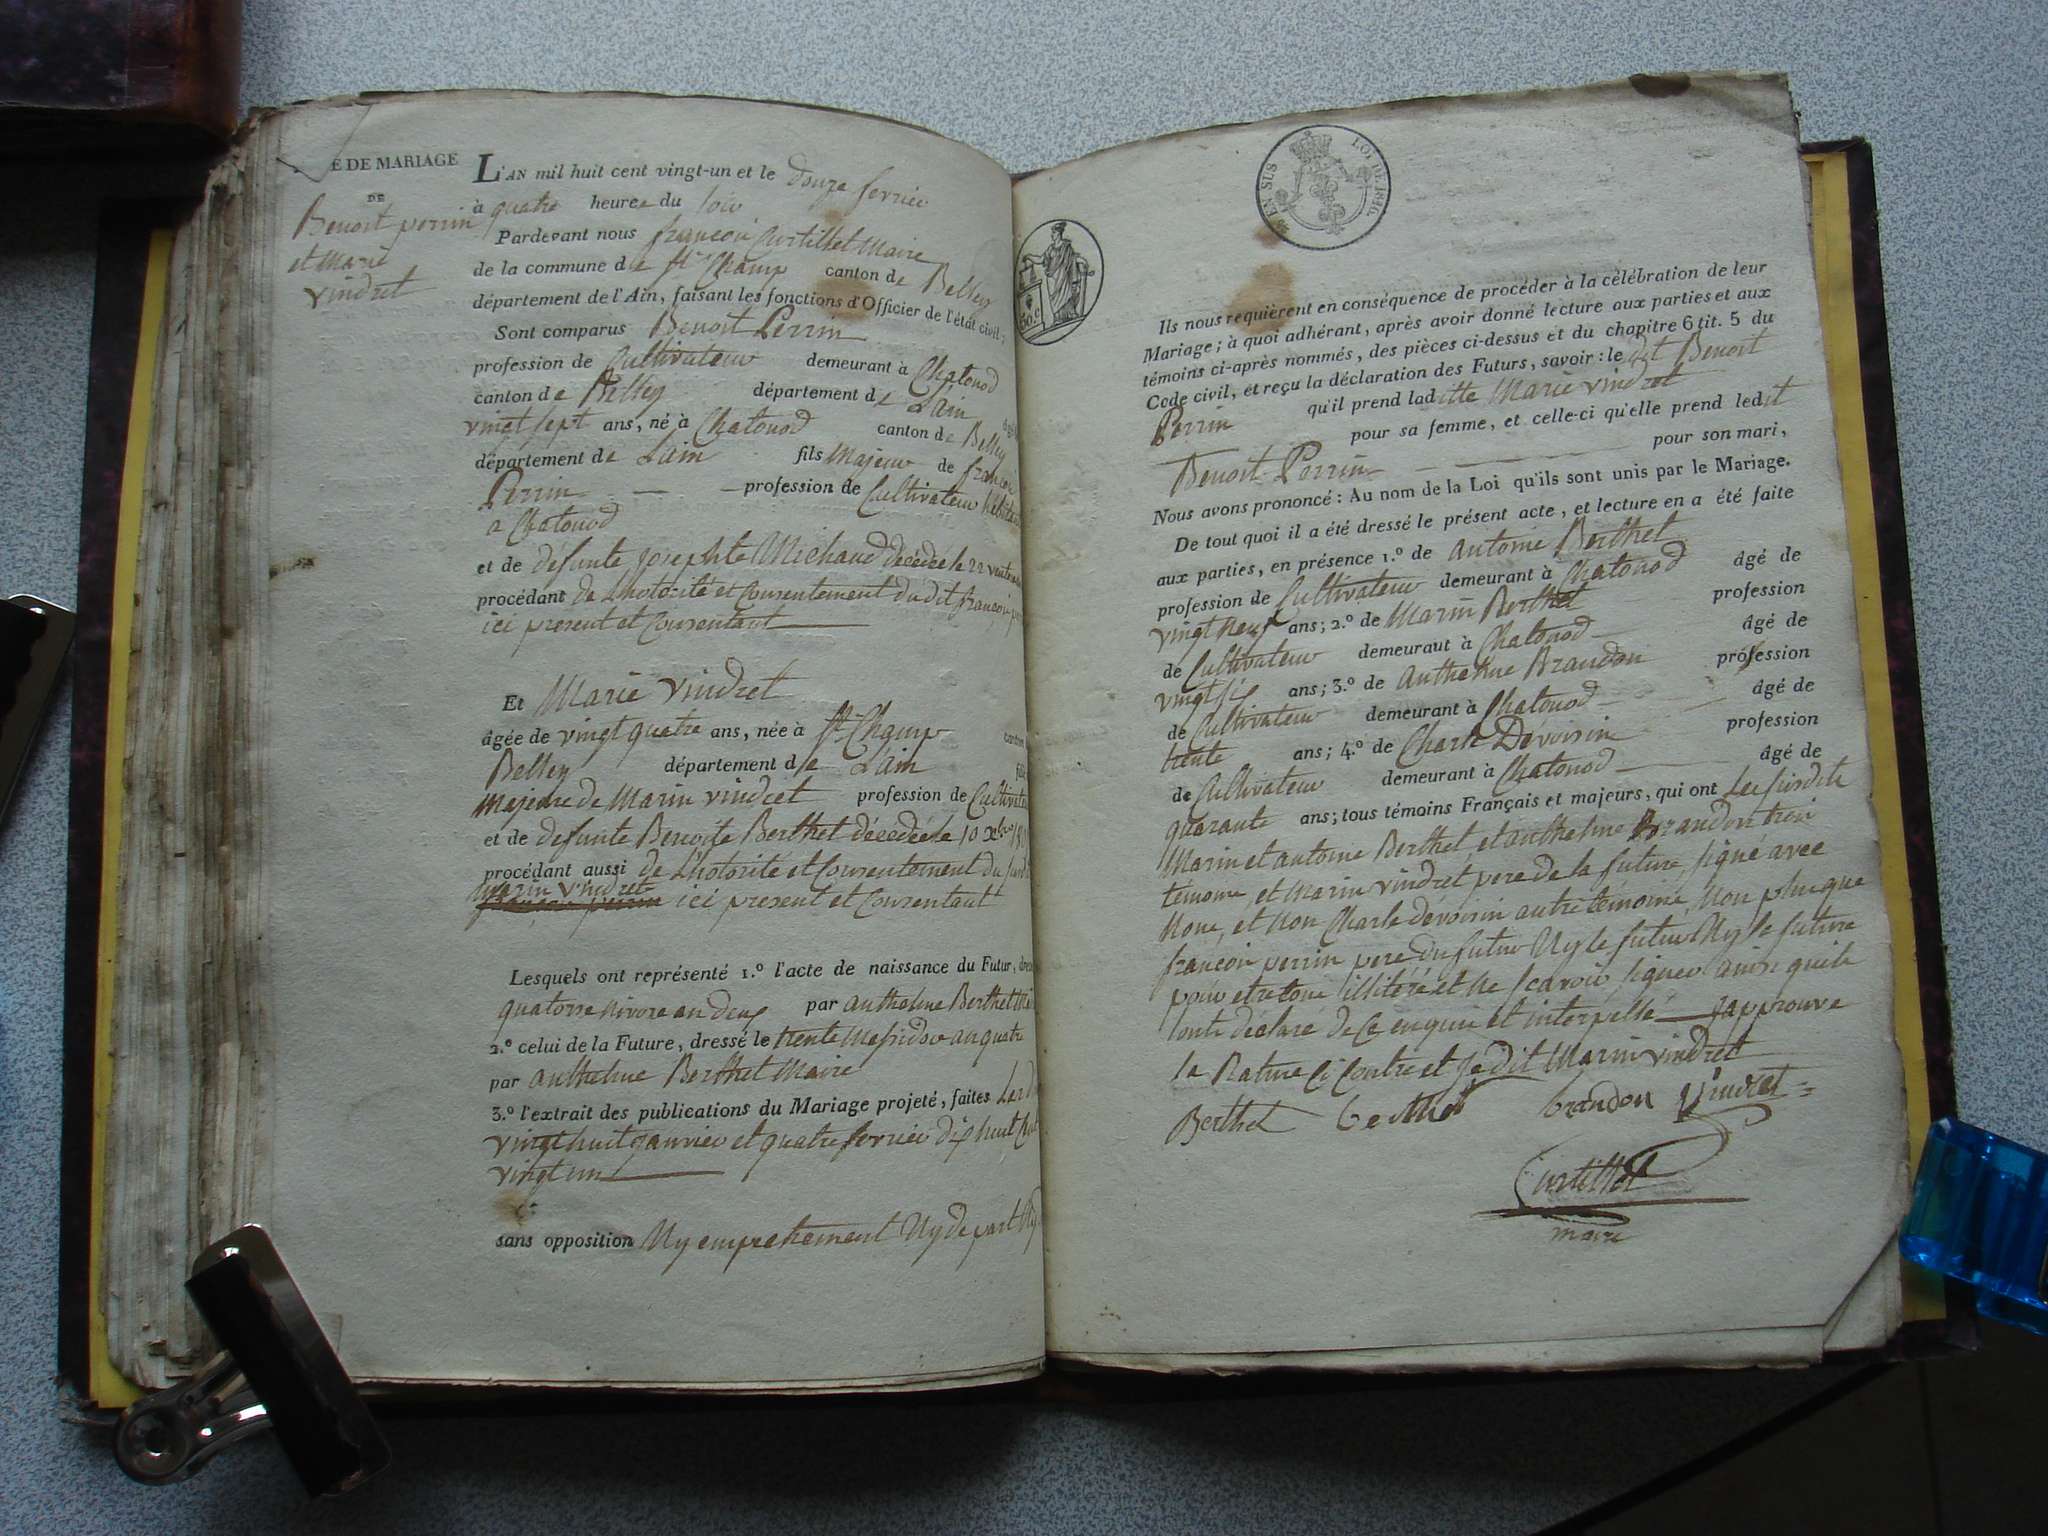 E DE MARIAGE
DE
Benoit perrin
et Marie
vindret
L'AN mil huit cent vingt-un et le douze fevrier
à quatre heures du soir
Pardevant nous françois Curtilhet Maire
de la commune de St Champ canton de Belley
département de l'Ain, faisant les fonctions d'Officier de l'état civil;
Sont comparus Benoit Perrin
profession de Cultivateur demeurant à Chatonod
canton de Belley département de L'ain âgé
vingt sept ans, né à Chatonod canton de Belley
département de Lain fils Majeur de françois
Perrin profession de Cultivateur
a Chatonod
et de defunte josephte Michaud décédée le 22
procédant de L'hotorité et Consentement du dit françois
ici present et Consentant
Et Marie vindret
âgée de vingt quatre ans, née à St Champ canton
Belley département de L'ain
Majeure de Marin vindret profession de
et de defunte Benoite Berthet décédée le 10 xbre
procédant aussi de L'hotorité et Consentement du
Marin vindret
françois perrin ici present et Consentant
Lesquels ont représenté 1.º l'acte de naissance du Futur,
quatorse nivose an deux par anthelme Berthet
2.º celui de la Future, dressé le trente Messidor an quatre
par anthelme Berthet Maire
3.º l'extrait des publications du Mariage projeté, faites
vingt huit janvier et quatre fevrier dix huit
vingt un
sans opposition Ny empechement Ny de part Ny
50.c
EN SUS
LOI DE 1816.
Ils nous requièrent en conséquence de procéder à la célébration de leur
Mariage; à quoi adhérant, après avoir donné lecture aux parties et aux
témoins ci-après nommés, des pièces ci-dessus et du chapitre 6 tit. 5 du
Code civil, et reçu la déclaration des Futurs, savoir: le dit Benoit
Perrin qu'il prend laditte Marie vindret
pour sa femme, et celle-ci qu'elle prend ledit
Benoit Perrin pour son mari,
Nous avons prononcé: Au nom de la Loi qu'ils sont unis par le Mariage.
De tout quoi il a été dressé le présent acte, et lecture en a été faite
aux parties, en présence 1.º de antoine Berthet
profession de Cultivateur demeurant à Chatonod âgé de
vingt neuf ans; 2.º de Marin Berthet profession
de Cultivateur demeurant à Chatonod âgé de
vingt six ans; 3.º de anthelme Brandon profession
de Cultivateur demeurant à Chatonod âgé de
trente ans; 4.º de Charle Devoisin profession
de Cultivateur demeurant à Chatonod âgé de
quarante ans; tous témoins Français et majeurs, qui ont Les susdits
Marin et antoine Berthet, et anthelme Brandon trois
temoins, et Marin vindret pere de la future, signé avec
Nous, et non Charle devoisin autre temoins, Non plus que
françois perrin pere du futur Ny le futur Ny le future
pour etre tous illiteré et Ne Scavoir signer ainsi quils
lont déclaré de Ce enquis et interpellé japprouve
la Rature Ci Contre et Je dit Marin vindret
Berthet berthet brandon Vindret
Curtilhet
maire